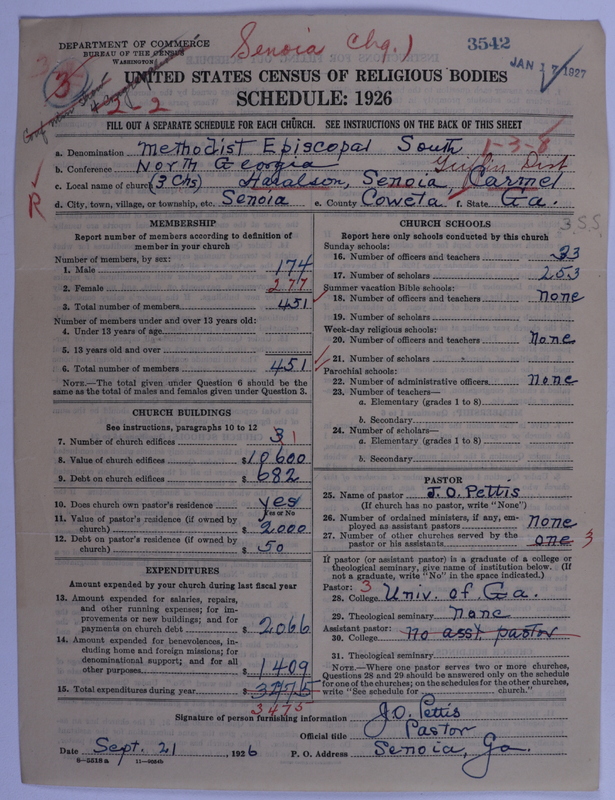 Senoia Chg.
3542
JAN 17 1927
DEPARTMENT OF COMMERCE
BUREAU OF THE CENSUS
WASHINGTON
3
2-2
UNITED STATES CENSUS OF RELIGIOUS BODIES
SCHEDULE: 1926
FILL OUT A SEPARATE SCHEDULE FOR EACH CHURCH. SEE INSTRUCTIONS ON THE BACK OF THIS SHEET
a. Denomination Methodist Episcopal South 1-3-8
b. Conference North Georgia Griffin Dist
c. Local name of church (3 Chs) Haralson, Senoia, Carmel
R
d. City, town, village, or township, etc. Senoia e. County Coweta f. State Ga.
MEMBERSHIP
Report number of members according to definition of
member in your church
Number of members, by sex:
1. Male 174
2. Female 277
3. Total number of members 451
Number of members under and over 13 years old:
4. Under 13 years of age
5. 13 years old and over
6. Total number of members 451
NOTE.—The total given under Question 6 should be the
same as the total of males and females given under Question 3.
CHURCH BUILDINGS
See instructions, paragraphs 10 to 12
7. Number of church edifices 3
8. Value of church edifices $10600
9. Debt on church edifices $682
10. Does church own pastor's residence yes
Yes or No
11. Value of pastor's residence (if owned by
church) $2000
12. Debt on pastor's residence (if owned by
church) $50
EXPENDITURES
Amount expended by your church during last fiscal year
13. Amount expended for salaries, repairs,
and other running expenses; for im-
provements or new buildings; and for
payments on church debt $2066
14. Amount expended for benevolences, in-
cluding home and foreign missions; for
denominational support; and for all
other purposes $1409
15. Total expenditures during year $3475
3475
CHURCH SCHOOLS
3 S.S.
Report here only schools conducted by this church
Sunday schools:
16. Number of officers and teachers 23
17. Number of scholars 253
Summer vacation Bible schools:
18. Number of officers and teachers none
19. Number of scholars
Week-day religious schools:
20. Number of officers and teachers none
21. Number of scholars
Parochial schools:
22. Number of administrative officers none
23. Number of teachers—
a. Elementary (grades 1 to 8)
b. Secondary
24. Number of scholars—
a. Elementary (grades 1 to 8)
b. Secondary
PASTOR
25. Name of pastor J. O. Pettis
(If church has no pastor, write "None")
26. Number of ordained ministers, if any, em-
ployed as assistant pastors none
27. Number of other churches served by the
pastor or his assistants one 3
If pastor (or assistant pastor) is a graduate of a college or
theological seminary, give name of institution below. (If
not a graduate, write "No" in the space indicated.)
Pastor: 3
28. College Univ. of Ga.
29. Theological seminary none
Assistant pastor:
30. College no asst. pastor
31. Theological seminary
NOTE.—Where one pastor serves two or more churches,
Questions 28 and 29 should be answered only on the schedule
for one of the churches; on the schedules for the other churches,
write "See schedule for church."
Signature of person furnishing information J.O. Pettis
Official title Pastor
Date Sept. 21, 1926 P. O. Address Senoia, Ga.
8-5518a 11-8024b